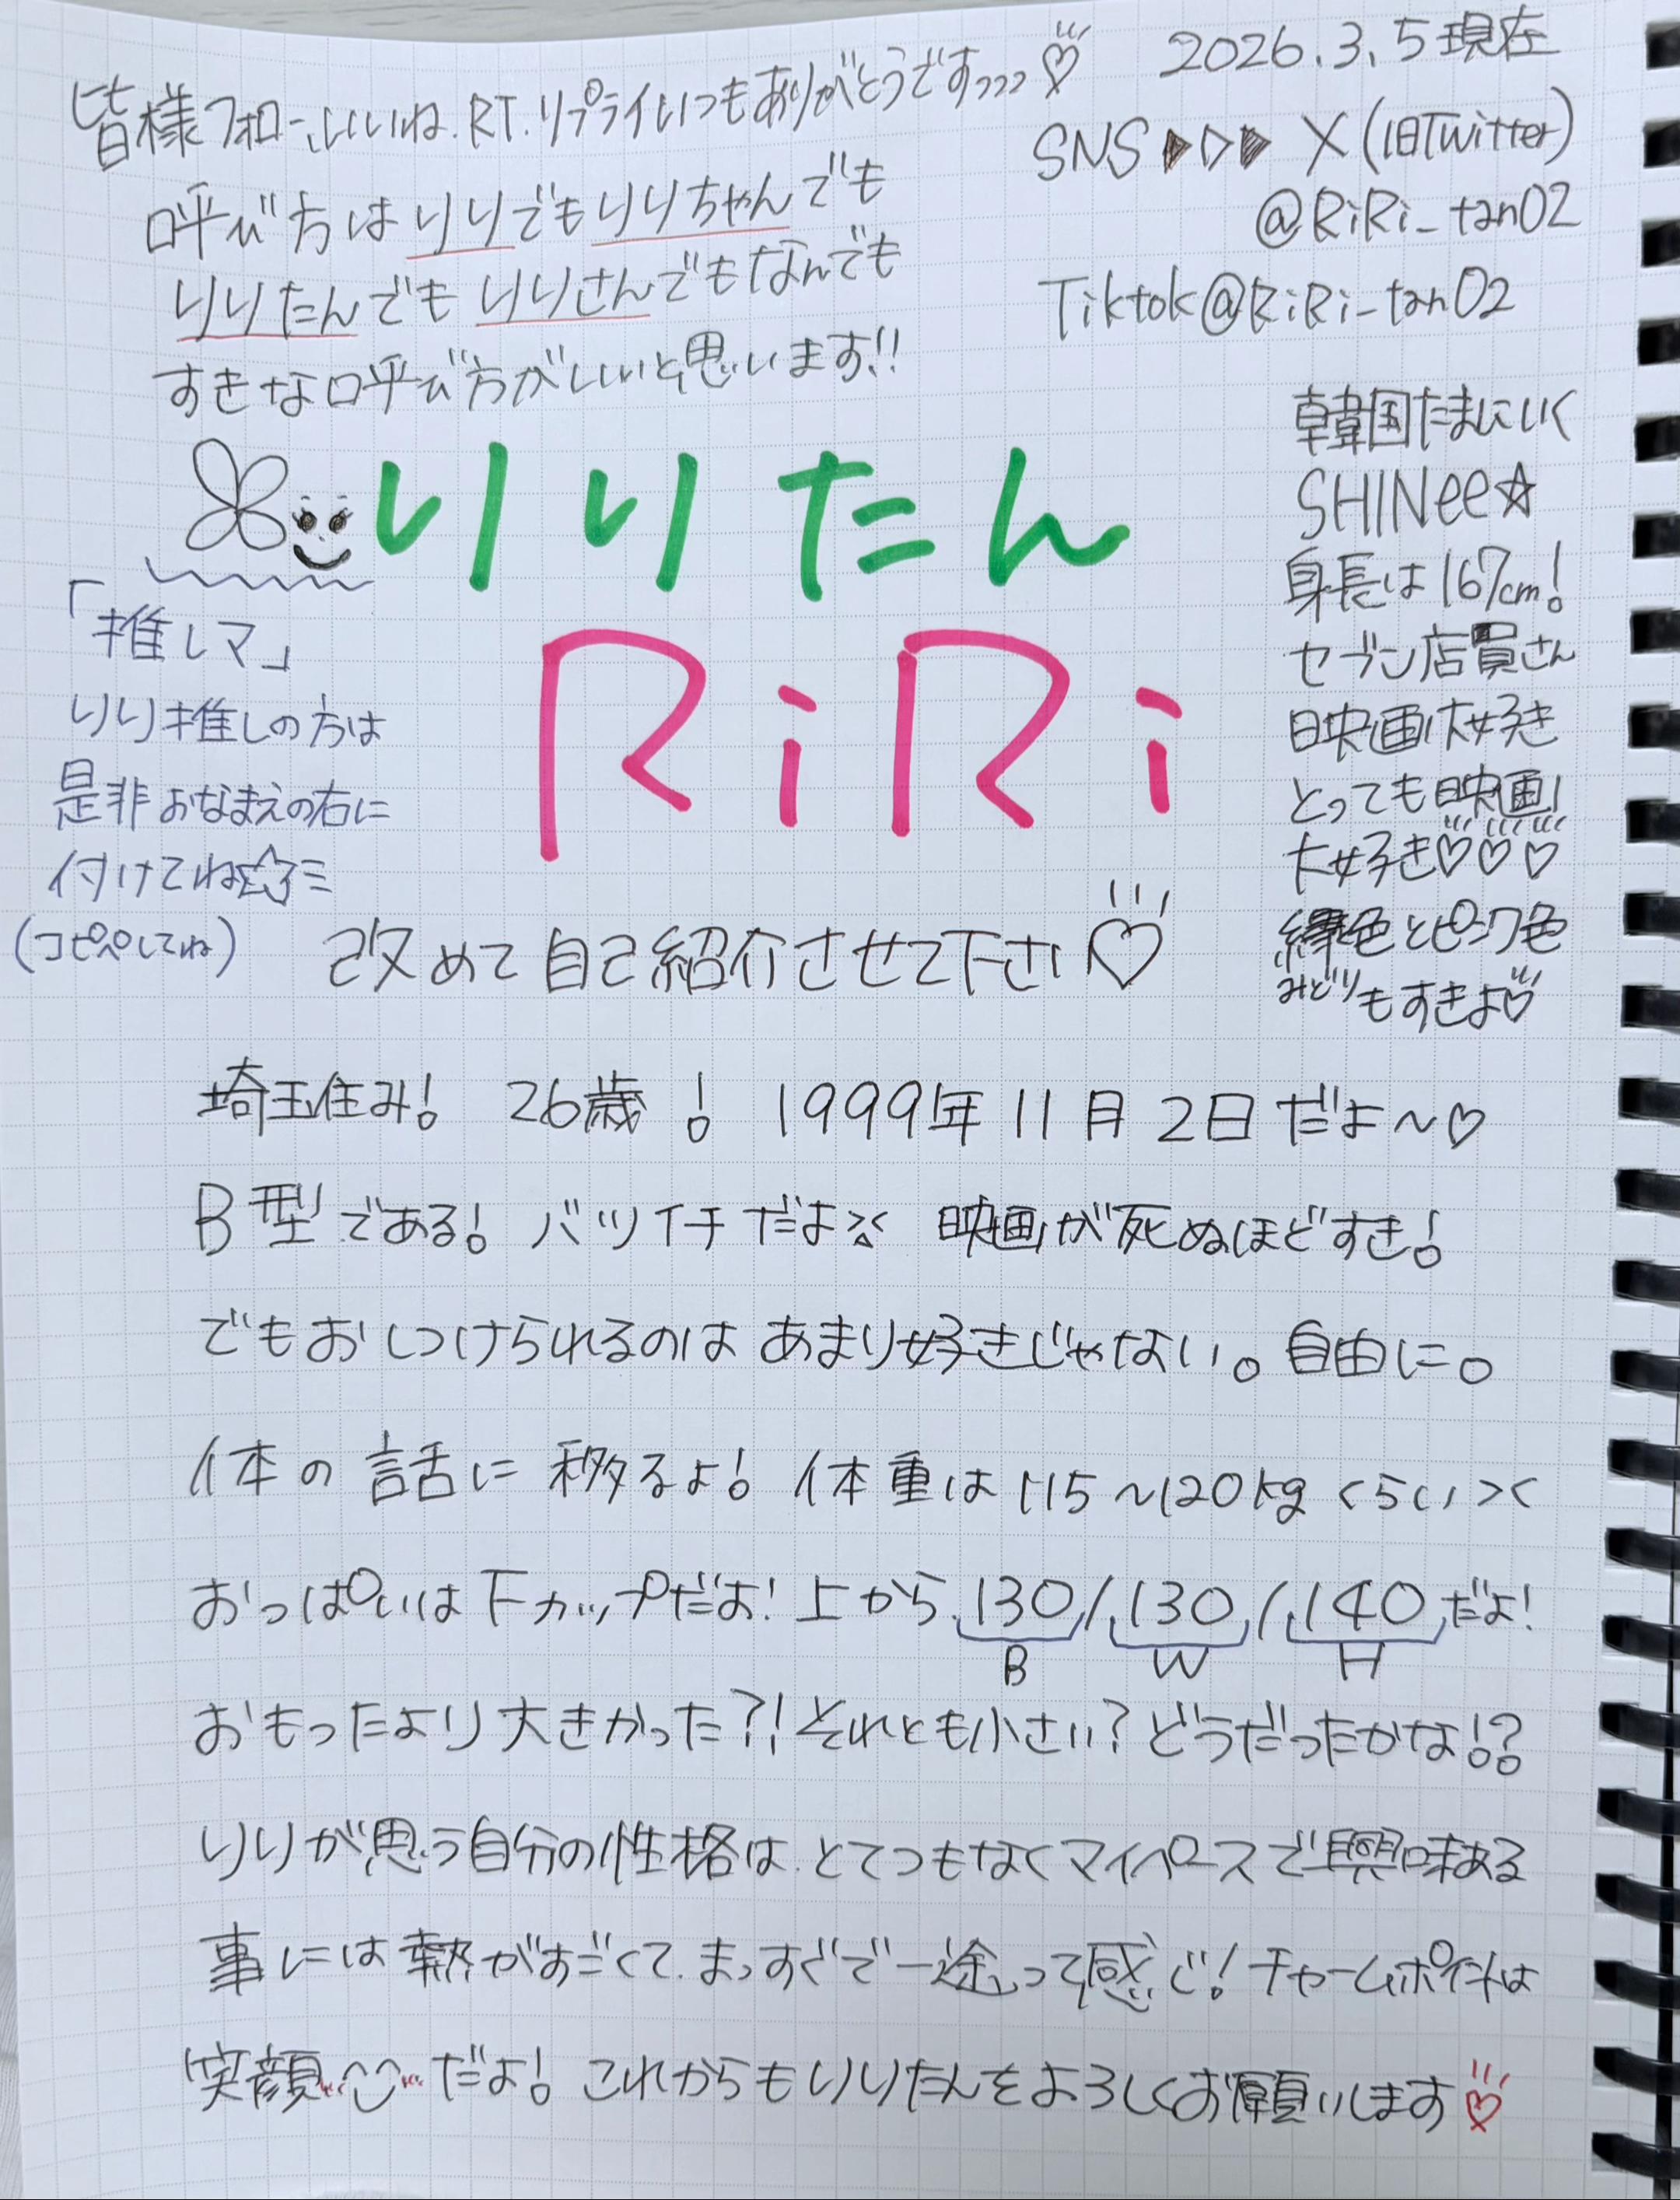 2026.3.5現在
皆様フォロー、いいね、RT、リプライいつもありがとうですっっっ♡
呼び方はりりでもりりちゃんでも
りりたんでもりりさんでもなんでも
すきな呼び方がいいと思います!!
SNS▶▷▶ X(旧Twitter)
@RiRi_tan02
Tiktok@RiRi_tan02
りりたん
RiRi
「推しマ」
りり推しの方は
是非おなまえの右に
付けてね☆彡
(コピペしてね)
韓国たまにいく
SHINee☆
身長は167cm!
セブン店員さん
映画大好き
とっても映画
大好き♡♡♡
緑色とピンク色
みどり
もすきよ♡
改めて自己紹介させて下さい♡
埼玉住み! 26歳! 1999年11月2日だよ〜♡
B型である! バツイチだよ 映画が死ぬほどすき!
でもおしつけられるのはあまり好きじゃない。自由に。
体の話に移るよ! 体重は115〜120kgくらい><
おっぱいはFカップだよ! 上から130/130/140だよ!
B W H
おもったより大きかった?! それとも小さい? どうだったかな!?
りりが思う自分の性格は、とてつもなくマイペースで興味ある
事には熱がすごくて、まっすぐで一途って感じ! チャームポイントは
笑顔だよ! これからもりりたんをよろしくお願いします♡